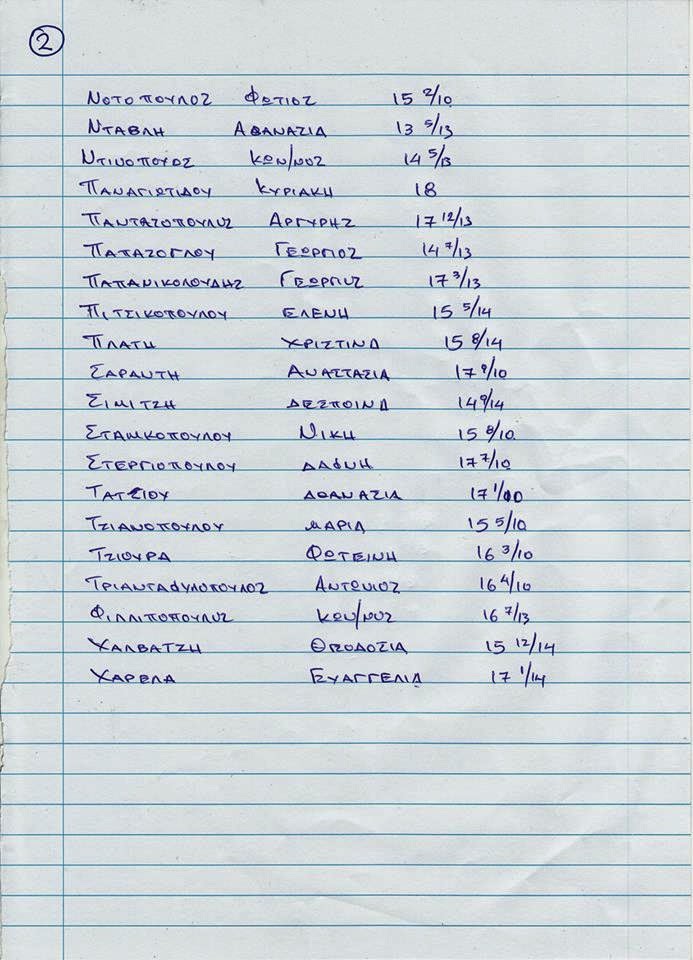 2
ΝΟΤΟΠΟΥΛΟΣ ΦΩΤΙΟΣ 15 2/10
ΝΤΑΒΛΗ ΑΘΑΝΑΣΙΑ 13 5/13
ΝΤΙΝΟΠΟΥΟΣ ΚΩΝ/ΝΟΣ 14 5/13
ΠΑΝΑΓΙΩΤΙΔΟΥ ΚΥΡΙΑΚΗ 18
ΠΑΝΤΑΖΟΠΟΥΛΟΣ ΑΡΓΥΡΗΣ 17 12/13
ΠΑΠΑΖΟΓΛΟΥ ΓΕΩΡΓΙΟΣ 14 7/13
ΠΑΠΑΝΙΚΟΛΟΥΔΗΣ ΓΕΩΡΓΙΟΣ 17 3/13
ΠΙΤΣΙΚΟΠΟΥΛΟΥ ΕΛΕΝΗ 15 5/14
ΠΛΑΤΗ ΧΡΙΣΤΙΝΑ 15 8/14
ΣΑΡΑΝΤΗ ΑΝΑΣΤΑΣΙΑ 17 9/10
ΣΙΜΙΤΖΗ ΔΕΣΠΟΙΝΑ 14 9/14
ΣΤΑΜΚΟΠΟΥΛΟΥ ΝΙΚΗ 15 8/10
ΣΤΕΡΓΙΟΠΟΥΛΟΥ ΔΑΦΝΗ 17 7/10
ΤΑΤΣΙΟΥ ΑΘΑΝΑΣΙΑ 17 1/10
ΤΖΙΑΝΟΠΟΥΛΟΥ ΜΑΡΙΑ 15 5/10
ΤΖΙΟΥΡΑ ΦΩΤΕΙΝΗ 16 3/10
ΤΡΙΑΝΤΑΦΥΛΟΠΟΥΛΟΣ ΑΝΤΩΝΙΟΣ 16 4/10
ΦΙΛΛΙΠΟΠΟΥΛΟΣ ΚΩΝ/ΝΟΣ 16 7/13
ΧΑΛΒΑΤΖΗ ΘΕΟΔΟΣΙΑ 15 12/14
ΧΑΡΕΛΑ ΕΥΑΓΓΕΛΙΑ 17 1/14